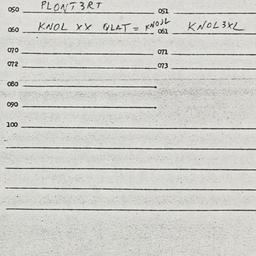 050 PLONT3RT 051
060 KNOL XX QLAT = KNOJL 061 KNOL3XL
070 071
072 073
080
090
100